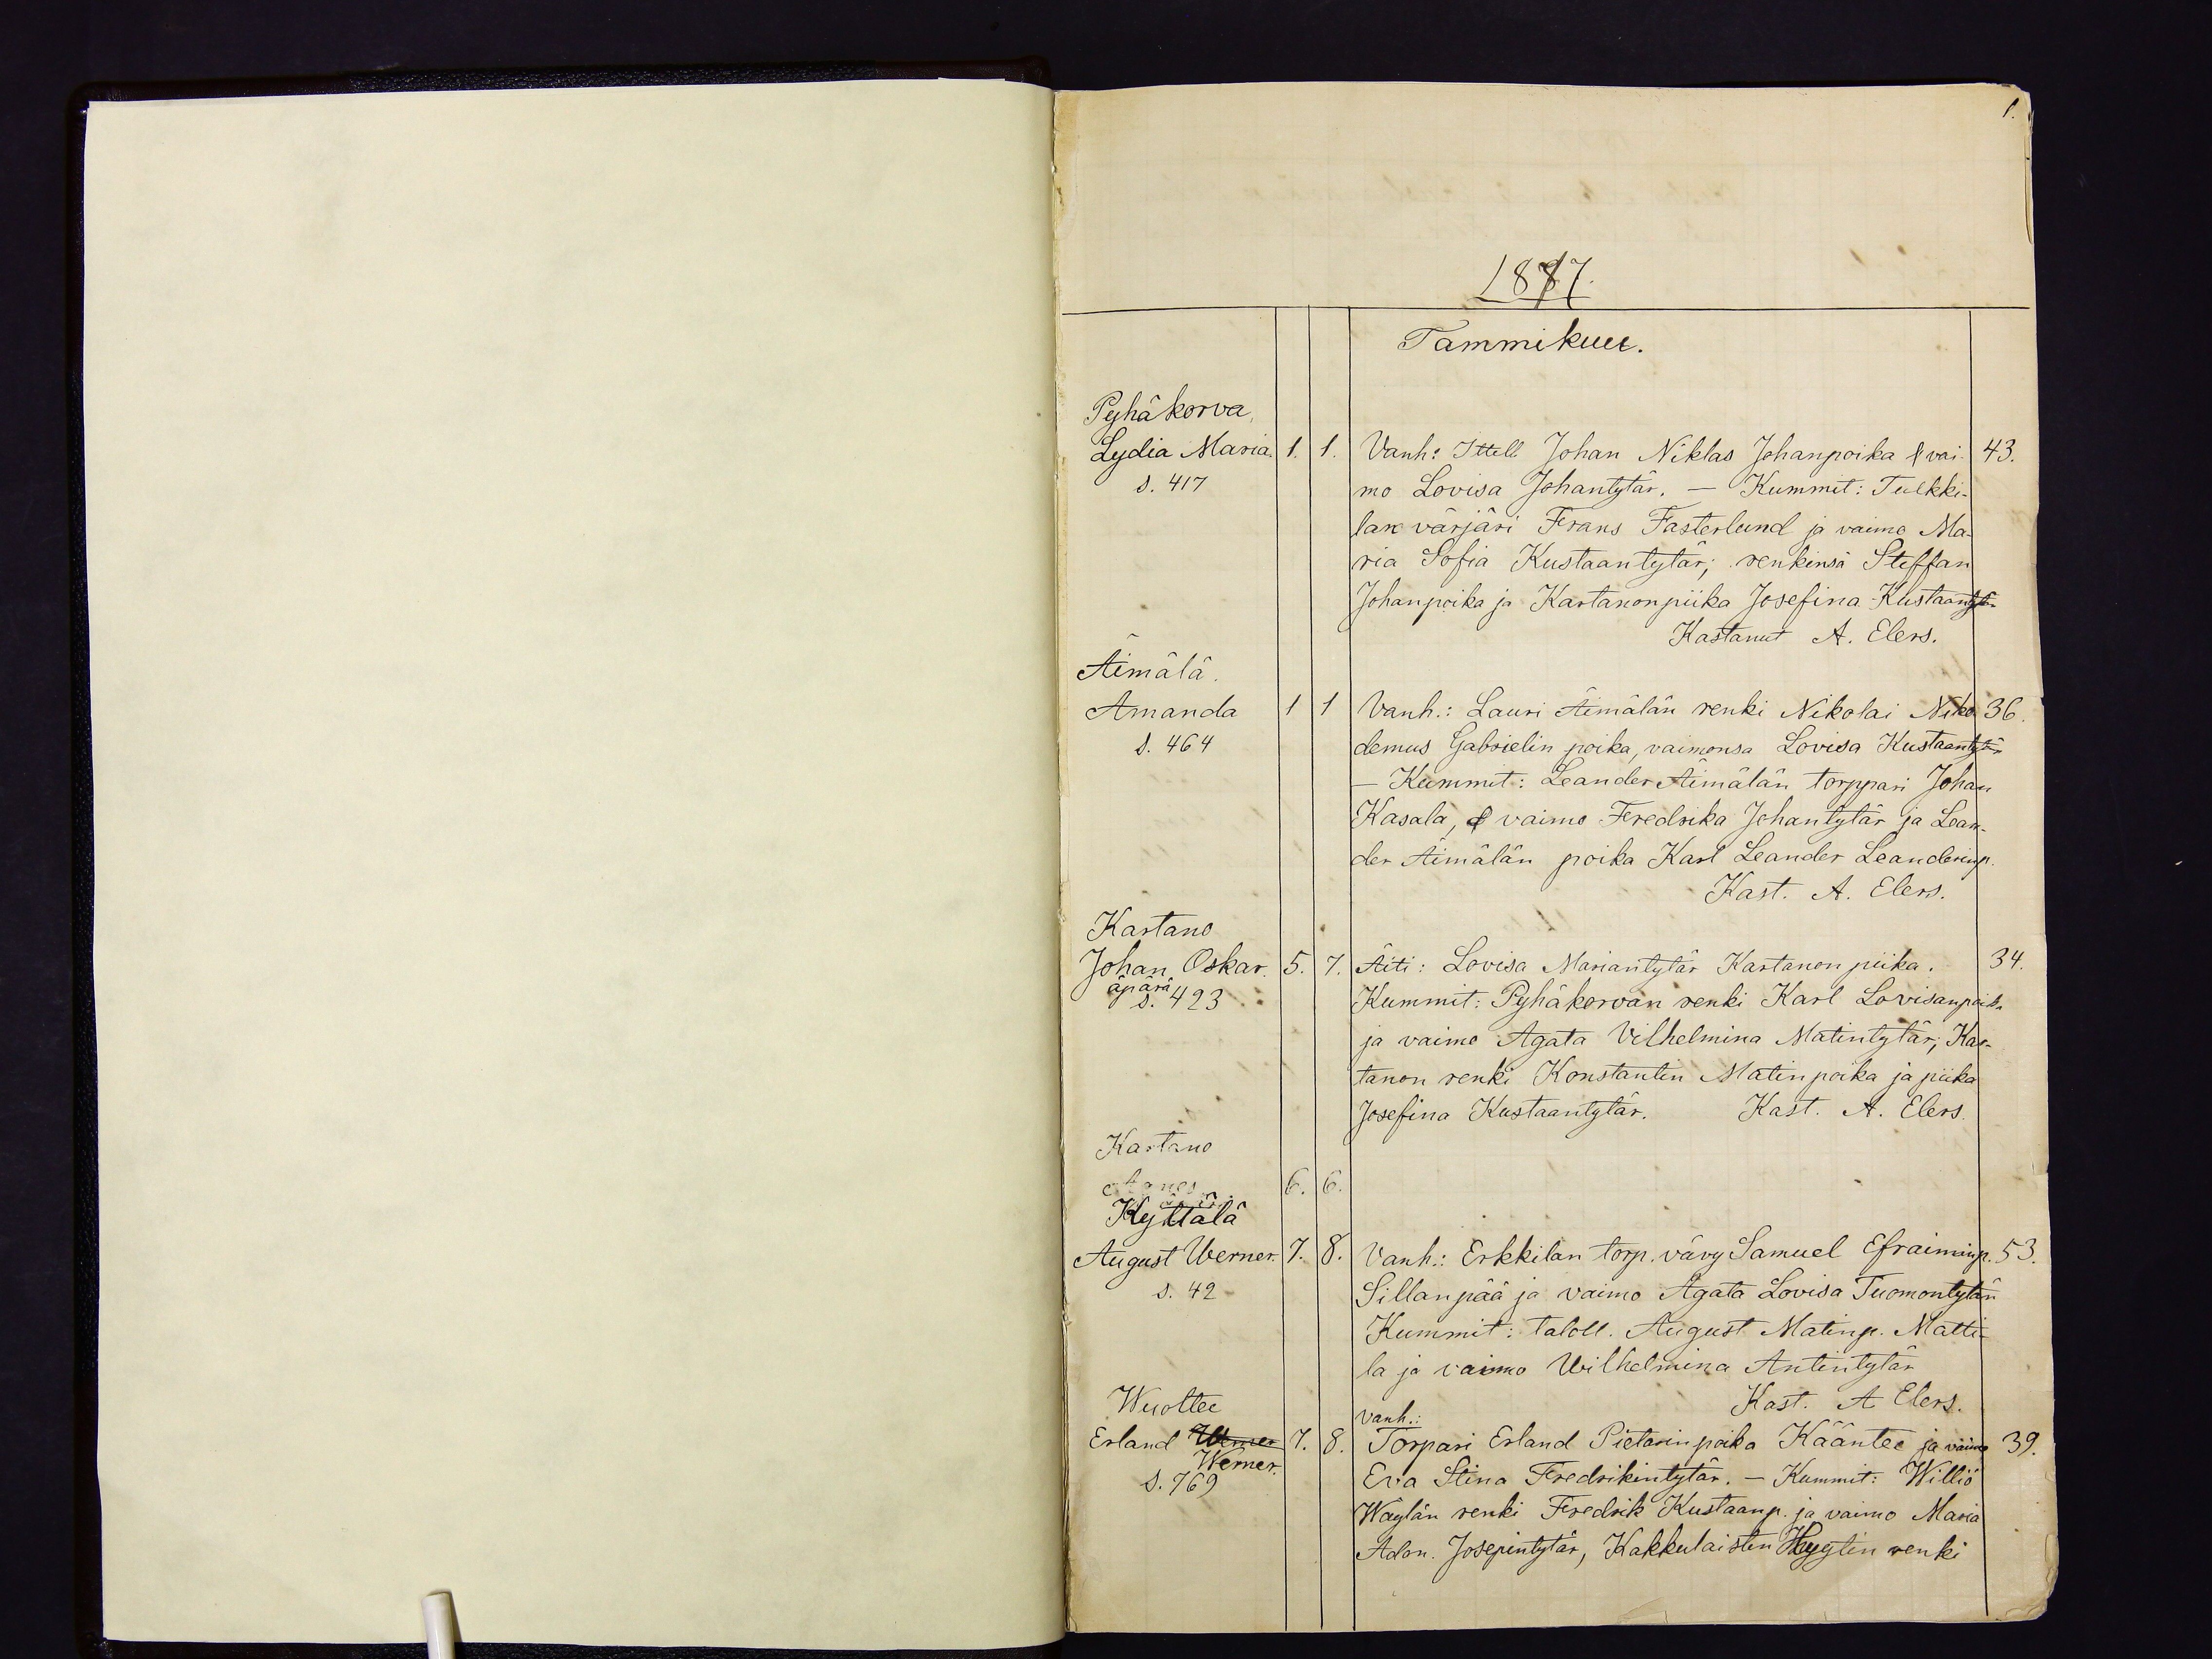 1.
1887.
Tammikuu.
Pyhäkorva,
Lydia Maria. 1. 1. Vanh: Ittell Johan Niklas Johanpoika & vai- 43.
s. 417 mo Lovisa Johantytär. — Kummit: Tulkki-
lan värjäri Frans Fasterlund ja vaimo Ma-
ria Sofia Kustaantytär; renkinsä Steffan
Johanpoika ja Kartanonpiika Josefina Kustaantytär
Kastanut A. Elers.
Äimälä.
Amanda 1 1 Vanh.: Lauri Äimälän renki Nikolai Niko 36.
s. 464 demus Gabrielin poika, vaimonsa Lovisa Kustaantytär
— Kummit: Leander Äimälän torppari Johan
Kasala, & vaimo Fredrika Johantytär ja Lean-
der Äimälän poika Karl Leander Leanderinp.
Kast. A. Elers.
Kartano
Johan Oskar. 5. 7. Äiti: Lovisa Mariantytär Kartanon piika. 34.
äpärä
s. 423 Kummit: Pyhäkorvan renki Karl Lovisanpoika
ja vaimo Agata Vilhelmina Matintytär; Kar-
tanon renki Konstantin Matinpoika ja piika
Josefina Kustaantytär. Kast. A. Elers.
Kartano
Agnes 6. 6.
Kyttälä
August Werner. 7. 8. Vanh.: Erkkilan torp. vävy Samuel Efraiminp. 53.
s. 42 Sillanpää ja vaimo Agata Lovisa Tuomontytär
Kummit: taloll. August Matinp. Matti-
la ja vaimo Wilhelmina Antintytär
Kast. A Elers.
Wuottee vanh.:
Erland Werner 7. 8. Torpari Erland Pietarinpoika Kääntee ja vaimo 39.
Werner.
s. 769 Eva Stina Fredrikintytär. — Kummit: Williö
Wäylän renki Fredrik Kustaanp. ja vaimo Maria
Adon. Josepintytär, Kakkulaisten Hyytin renki